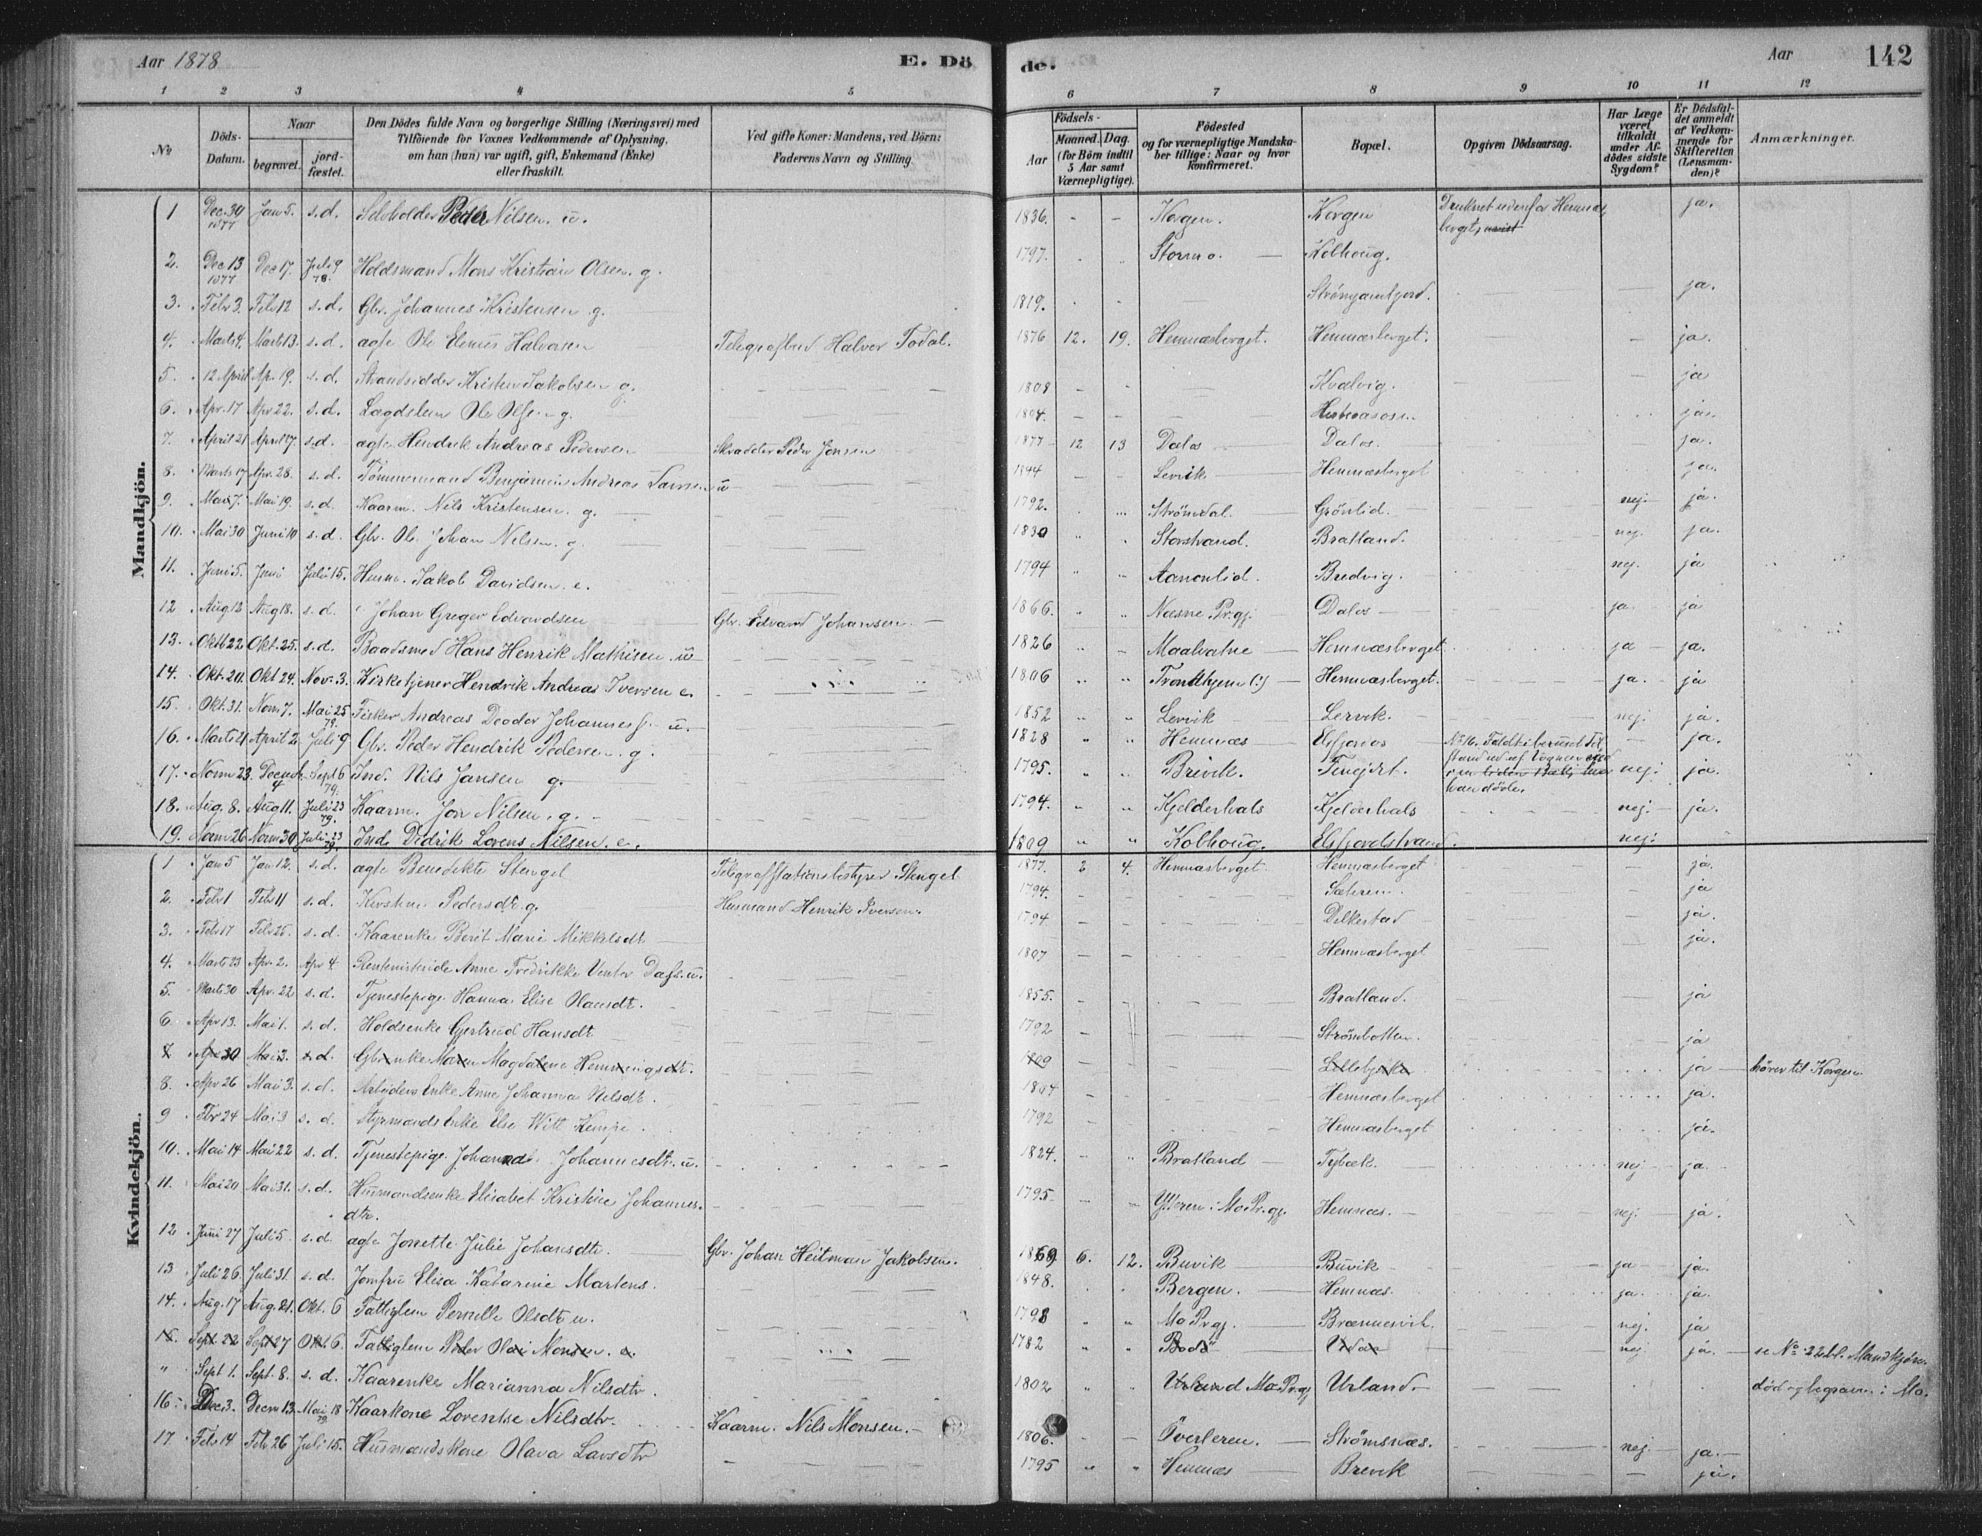 Aar 1878
E. Dö
de.
Aar
142
1 2 3 4 5
6 7 8 9 10 11 12
No
Döds-Datum.
Naar
begravet.
jordfæstet.
Den Dödes fulde Navn og borgerlige Stilling (Næringsvei) med
Tilföiende for Voxnes Vedkommende af Oplysning,
om han (hun) var ugift, gift, Enkemand (Enke)
eller fraskilt.
Ved gifte Koner: Mandens, ved Börn:
Faderens Navn og Stilling.
Födsels-
Aar
Maaned. Dag.
(for Börn indtil
5 Aar samt
Værnepligtige).
Födested
og for værnepligtige Mandskaber tillige: Naar og hvor
konfirmeret.
Bopæl.
Opgiven Dödsaarsag.
Har Læge
været
tilkaldt
under Afdödes sidste
Sygdom?
Er Dödsfaldet anmeldt
af Vedkommende for
Skifteretten
(Lensmanden)?
Anmærkninger.
Mandkjön.
1 Dec. 30 1877 Jan 5. s.d. Peder Nilsen. u. 1836. - - Korgen. Korgen Druknet udenfor Hemnæsberget, ja.
2. Dec 13 1877 Dec 17. Juli 9 78. Holdsmand Mons Kristian Olsen. g. 1797. Stormo Kobhoug.
3. Febr 3. Feb 12 s.d. Gbr. Johannes Kristensen g. 1819. ja.
4. Marts 4. Marts 13. s.d. agte Ole Halvorsen Telegrafbud Halvor Todal. 1876 12. 19. Hemnæsberget. Hemnæsberget. ja.
5. 12 April Ap. 19. s.d. Strandsidder Kristen Jakobsen g. 1808 Kvalvig. ja
6. Apr. 17 Apr 22. s.d. Lægdslem Ole Olsen g. 1804. ja.
7. April 21 April 27. s.d. agte Hendrik Andreas Pedersen Skradder Peder Jonsen 1877 12 13 Dalos Dalos. ja.
8. Marts 17 Apr. 28. s.d. Tömmermand Benjamin Andreas u 1844 Levik Hemnæsberget ja.
9. Mai 7. Mai 19. s.d. Kaarm. Nils Kristensen. g. 1792. Strömdal. Grönlid. nej. ja.
10. Mai 30 Juni 10 s.d. Gbr. Ole Johan Nilsen. g. 1830 Storstrand. Bratland. nej. ja.
11. Juni 5. Juni Juli 15. Husm. Jakob Davidsen e. 1794 Aanonlid. Bredvig. nej. ja
12 Aug 12 Aug 18. s.d. Johan Greger Edvardsen Gbr. Edvard Johansen. 1866. Næsne Prgj. Dalos ja. ja
13. Oktb 22 Okt. 25. s.d. Baadsmed Hans Henrik Mathisen. u 1826 Maalvatne Hemnæsberget ja ja.
14. Okt. 20. Okt 24. Nov. 3. Kirketjener Hendrik Andreas Iversen e. 1806 Trondhjem (?) Hemnæsberget. ja. ja
15. Okt. 31. Novm 7. Mai 25 79. Fisker Andreas Deoder Johannes. u. 1852 Lervik Lervik. nej. ja.
16. Marts 21 April 2. Juli 9 Gbr. Peder Hendrik Pedersen. g. 1828 Hemnæs Elsfjordos No 16. Faldt i beruset Tilstand ud af Vognen ja.
17. Novm 23. Decmb 4 Sept 6 79. Ind. Nils Jansen g. 1795. Brevik. nej. ja.
18. Aug. 8. Aug 11. Juli 23 79. Kaarm. Jon Nilsen. g. 1794. Kjelderhals Kjelderhals nej. ja.
19. Novm 26 Novm 30 Juli 23 79. Ind. Didrik Lorens Nilsen. e. 1809 Kobhoug. Elsfjordstrand. nej.
Kvindekjön.
1 Jan 5 Jan 12. s.d. agte Benedikte Stengel Telegrafstationsbestyrer Stengel 1877. 2 4. Hemnæsberget. Hemnæsberget ja.
2. Febr 1 Febr 11 s.d. Kirstine Pedersdtr g. Husmand Henrik Iversen. 1794. Sæteren. ja
3. Febr 17 Febr 25. s.d. Kaarenke Berit Marie Mikkelsdtr 1794 Dilkestad ja.
4. Marts 23 Apr. 2. Apr 4 Anne Fredrikke Venter Dass. u. 1807 Hemnæsberget ja.
5. Marts 30 Apr. 22 s.d. Tjenestepige Hanna Elise Olausdtr. 1855. Bratland. ja
6. Apr 13. Mai 1. s.d. Holdsenke Gjertrud Hansdtr 1792 Strömbotten. ja
7 Apr 30 Mai 3. s.d. Gbrenke Maren Magdalene Hemmingsdtr. 1809 ja hörer til Korgen.
8. Apr 26 Mai 3. s.d. Arbeiders Enke Anne Johanna Nilsdtr. 1807 Hemnæsberget ja.
9 Febr 24 Mai 3 s.d. Styrmands Enke Else Witt Kempe. 1792 Hemnæsberget ja.
10. Mai 14 Mai 22 s.d. Tjenestepige Johanna Johannesdtr. u. 1824. Bratland Tybæk. nej ja.
11. Mai 20 Mai 31. s.d. Husmandsenke Elisabet Kristine Johannesdtr. 1795 Ytteren i Mo Prgj. Hemnæs. nej. ja.
12 Juni 27 Juli 5. s.d. agte Jonette Julie Johansdtr. Gbr. Johan Heitman Jakobsen. 1869 6. 12. Buvik Buvik ja ja.
13 Juli 26. Juli 31. s.d. Jomfru Elisa Katarine Martens. 1848. Bergen. Hemnæs. ja. ja.
14. Aug. 17 Aug. 21. Okt. 6 Fattiglem Pernille Olsdtr u. 1798 Mo Prgj. Brænnesvik. nej. ja
15. Sept. 22 Sept 27 Okt 6. Fattiglem Peder Olai Monsen. e. 1782 Bodö nej ja. se No 22 bl. Mandkjön.
" Sept 1. Sept. 8. s.d. Kaarenke Marianna Nilsdtr. 1802 Urland Mo Prgj Urland. død og begraven i Mo.
16. Dec 3. Decm 13. Mai 18 79. Kaarkone Lorentse Nilsdtr. Kaarm. Nils Monsen. 1806. Tverteren. Strömsnæs. nej. ja.
17 Febr 14 Feb 26 Juli 15. Husmandskone Olava Larsdtr 1795 Hemnæs Brevik ja.